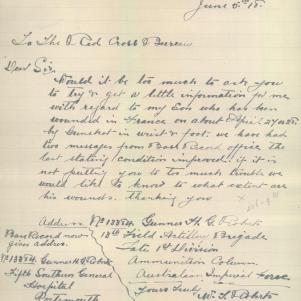 June 5th 18.
To The Red Cross Bureau
Dear Sir,
Would it be too much to ask you
to try & get a little information for me
with regard to my Son who has been
wounded in France on about April 27th or 28th
by Gunshot in wrist & foot. we have had
two messages from Base Record office the
last stating condition improved, if it is
not putting you to too much trouble we
would like to know to what extent are
his wounds. thanking you
Address No 13854 Gunner H. G.
Base Record now 13th Field Artillery Brigade
given address. Late 1st Division
No 13854 Ammunition Column
Gunner H G Australian Imperial Force
Fifth Southern General Yours Truly
Hospital W. L.
Portsmouth